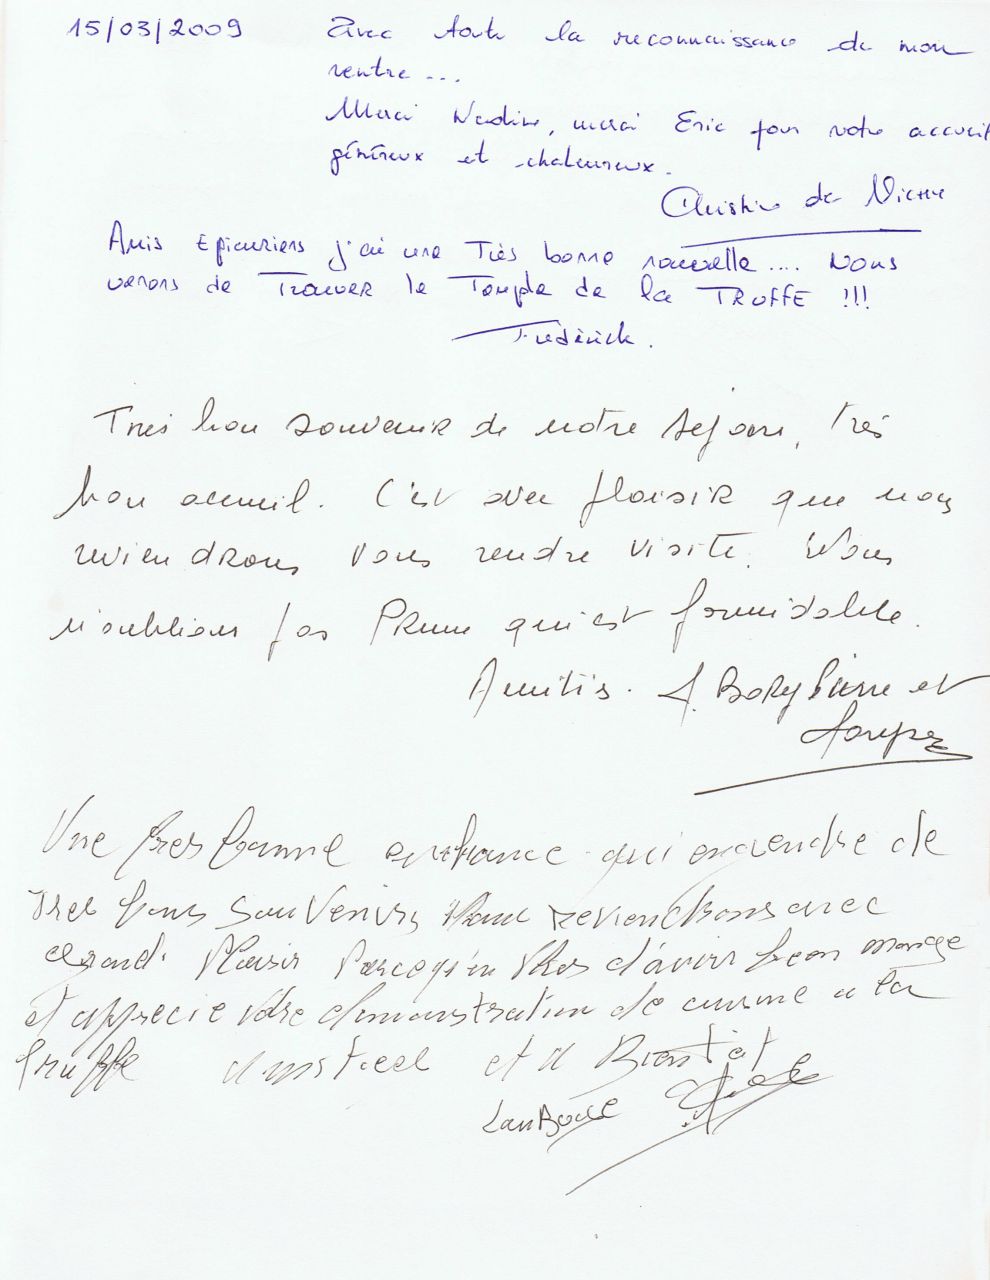 15/03/2009 Avec toute la reconnaissance de mon
ventre ...
Merci Nadine, merci Eric pour votre accueil
généreux et chaleureux.
Christine de Vienne
Amis Epicuriens j'ai une Très bonne nouvelle .... Nous
venons de Trouver le Temple de la TRUFFE !!!
Frédérick.
Très bon souvenir de notre séjour, très
bon accueil. C'est avec plaisir que nous
reviendrons vous rendre visite. Nous
n'oublions pas Prune qui est formidable.
Amitiés. A. Bory Pierre et
Une tres bonne qui engendre de
tres bons souvenirs Nous reviendrons avec
grand Plaisir Parcequ'en Plus d'avoir bien mangé
et apprecié Votre demonstration de cuisine a la
truffe et a Bientot